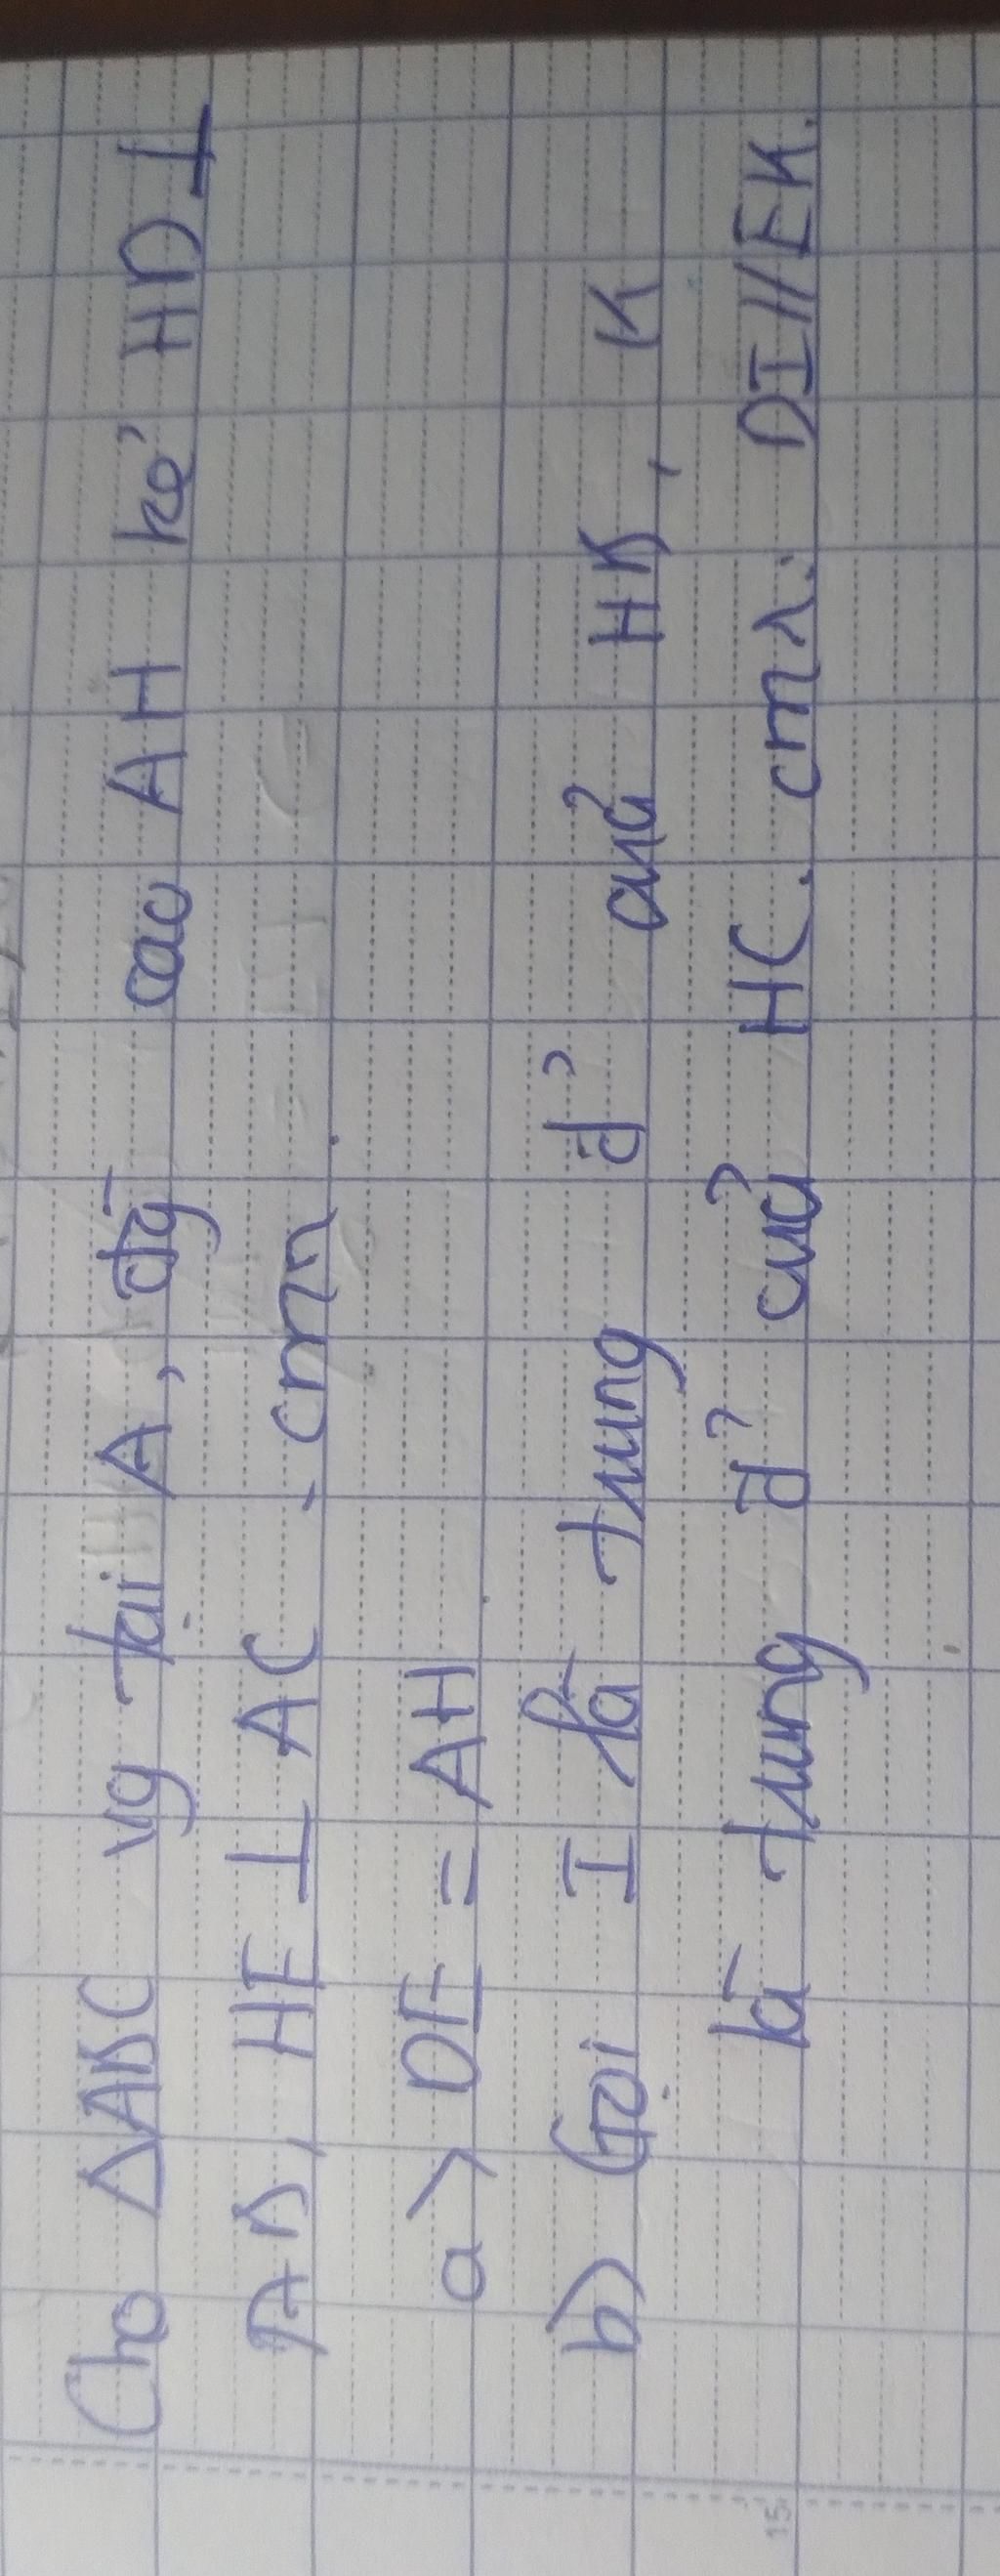 Cho ΔABC vg tại A, đg cao AH kẻ HD ⊥
AB, HE ⊥ AC. cm
a> DE = AH
b) Gọi I là trung đ' của HB, K
là trung đ' của HC. cmr: DI // EK.
15